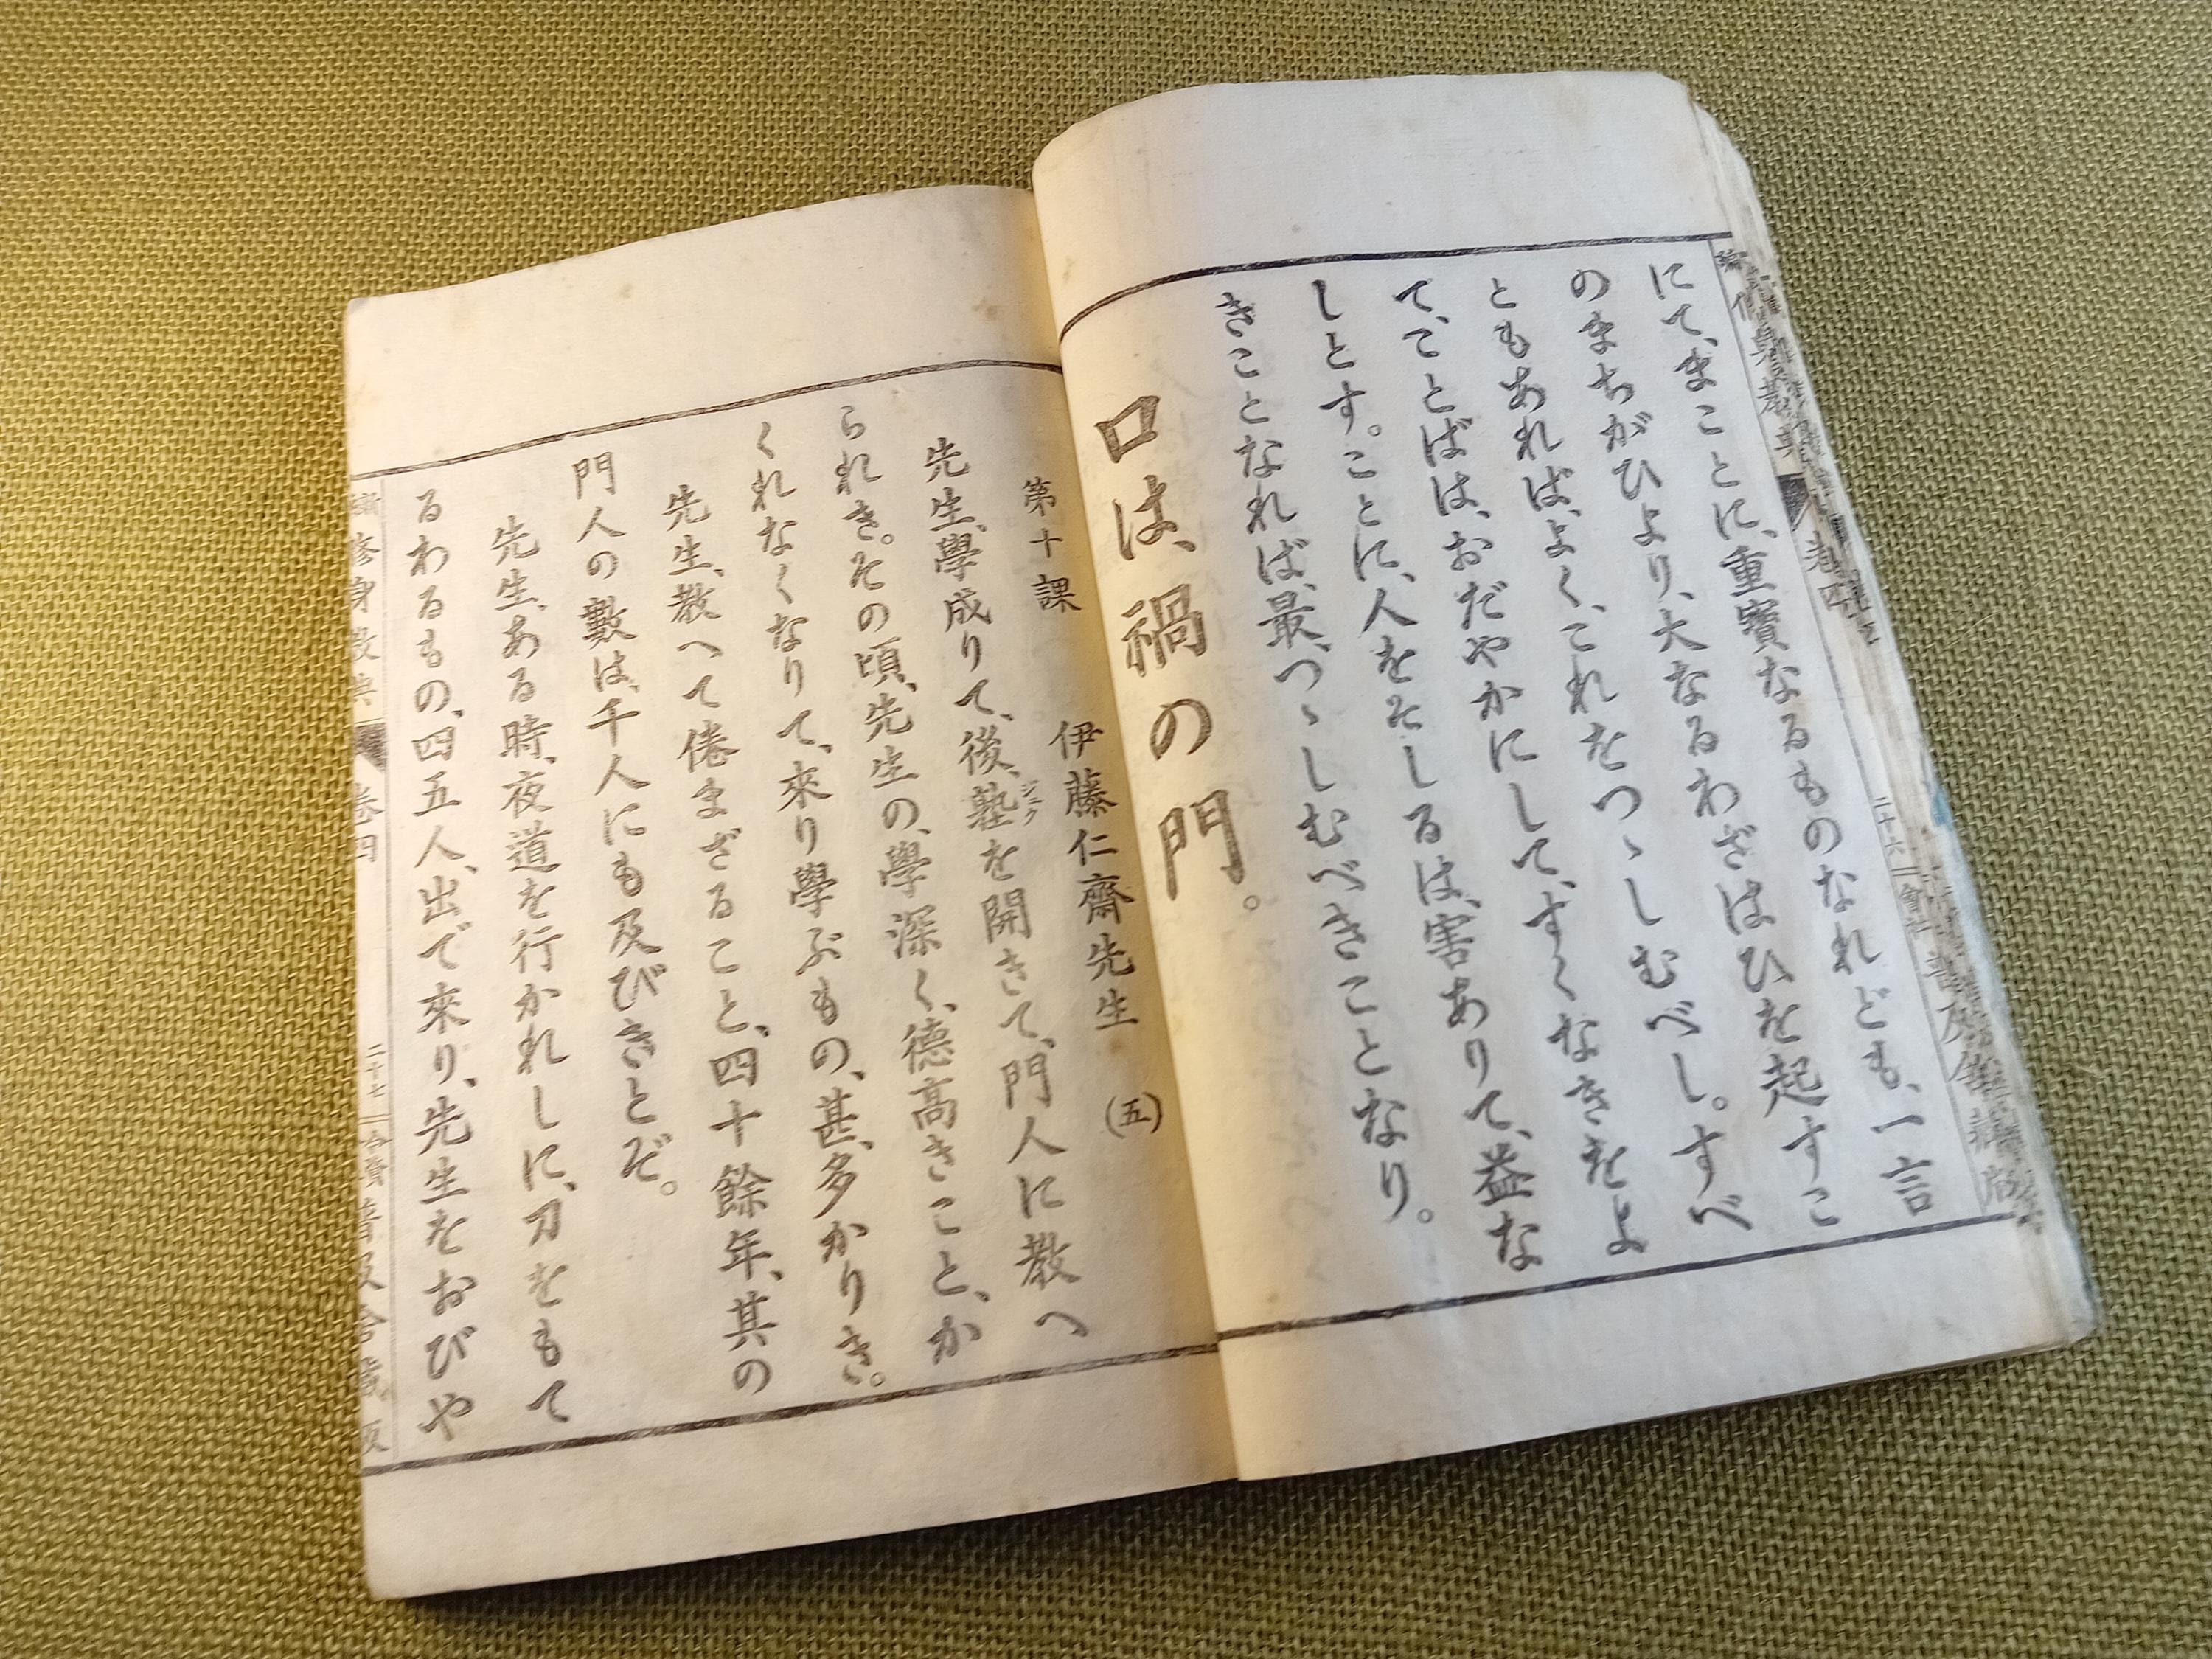 にて、まことに、重寶なるものなれども、一言
のまちがひより、大なるわざはひを起すこ
ともあれば、よく、これをつゝしむべし。すべ
て、ことばは、おだやかにして、すくなきをよ
しとす。ことに、人をそしるは、害ありて、益な
きことなれば、最、つゝしむべきことなり。
口は、禍の門。
第十課 伊藤仁齋先生 (五)
先生、學成りて、後、塾を開きて、門人に教へ
ジユク
られき。その頃、先生の、學深く、德高きこと、か
くれなくなりて、來り學ぶもの、甚、多かりき。
先生、教へて倦まざること、四十餘年、其の
門人の數は、千人にも及びきとぞ。
先生、ある時、夜道を行かれしに、刀をもて
るわるもの、四五人、出で來り、先生をおびや
修身 卷四